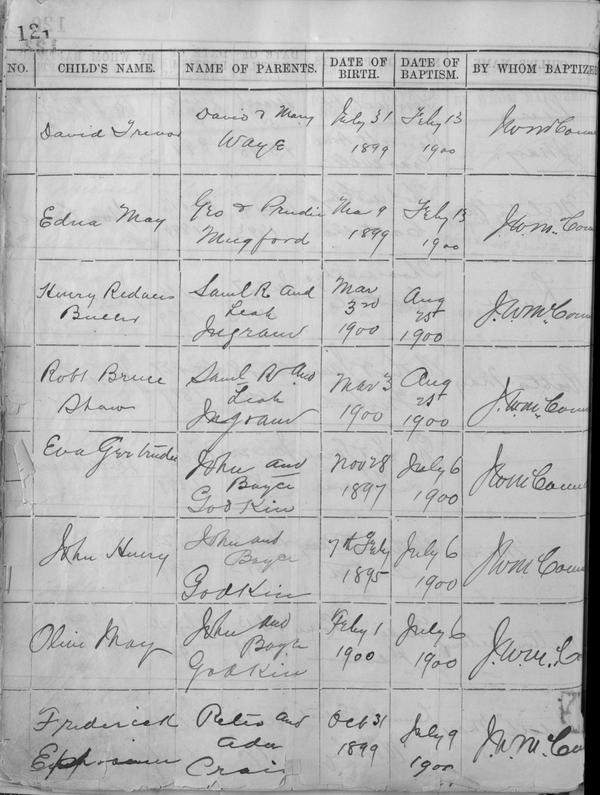 121
NO. CHILD'S NAME. NAME OF PARENTS. DATE OF BIRTH. DATE OF BAPTISM. BY WHOM BAPTIZED
David Trevor David & Mary Waye July 31 1899 Feby 13 1900
Edna May Geo & Mugford Mar 9 1899 Feby 13 1900 J.W.Mc
Henry Redvers Buller Saml R and Leah Ingram Mar 3rd 1900 Aug 1900 J.W.Mc
Robt Bruce Shaw Saml R and Leah Ingram Mar 3 1900 Aug 1900 J.W.Mc
Eva Gertrude John and Godkin Nov 28 1897 July 6 1900 J.W.Mc
John Henry John and Godkin 7th Feby 1895 July 6 1900 J.W.Mc
Olive May John and Godkin Feby 1 1900 July 6 1900 J.W.Mc
Frederick Peter and Ada Craig Oct 31 1899 July 9 1900 J.W.Mc